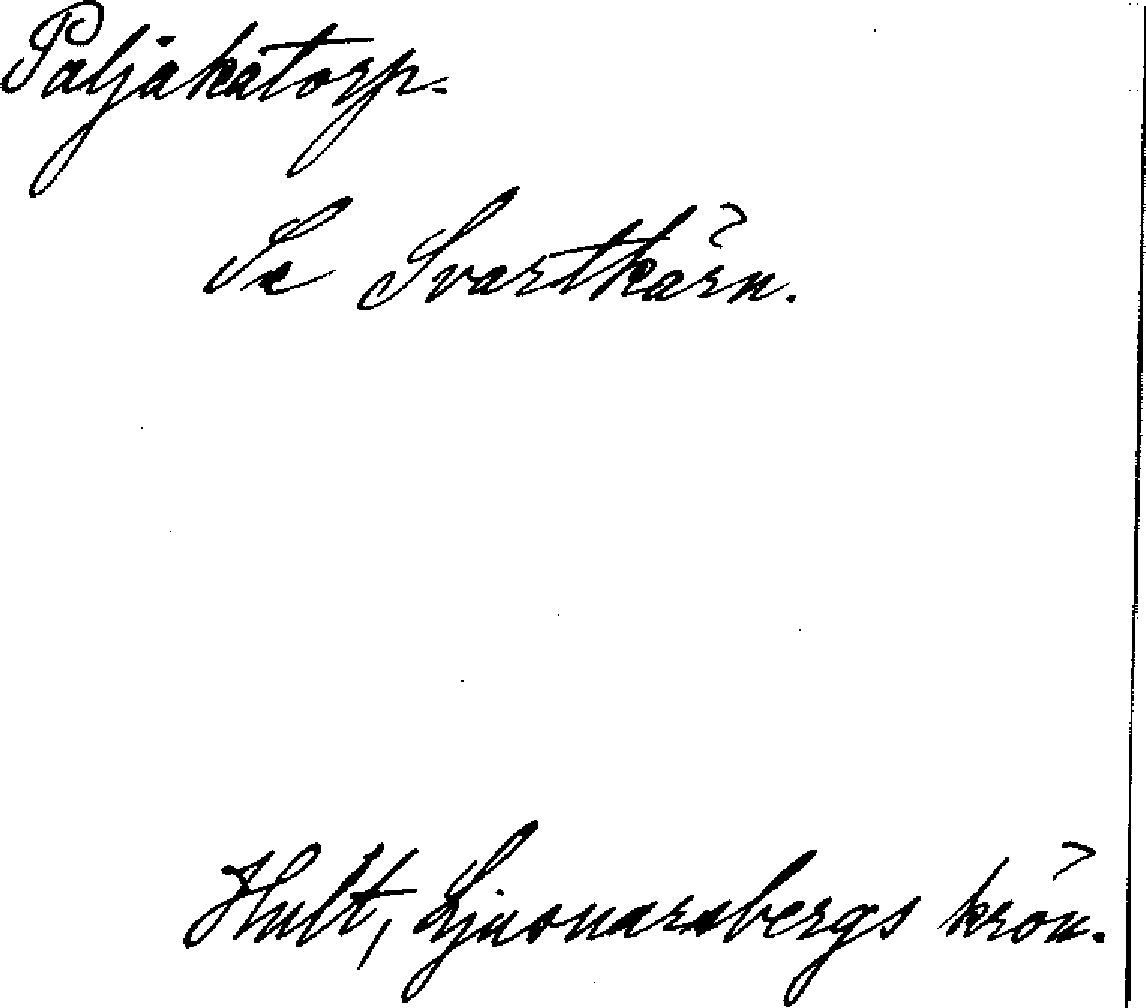 Paljakatorp.
Se Svartkärn.
Hult, Ljusnarsbergs krön.